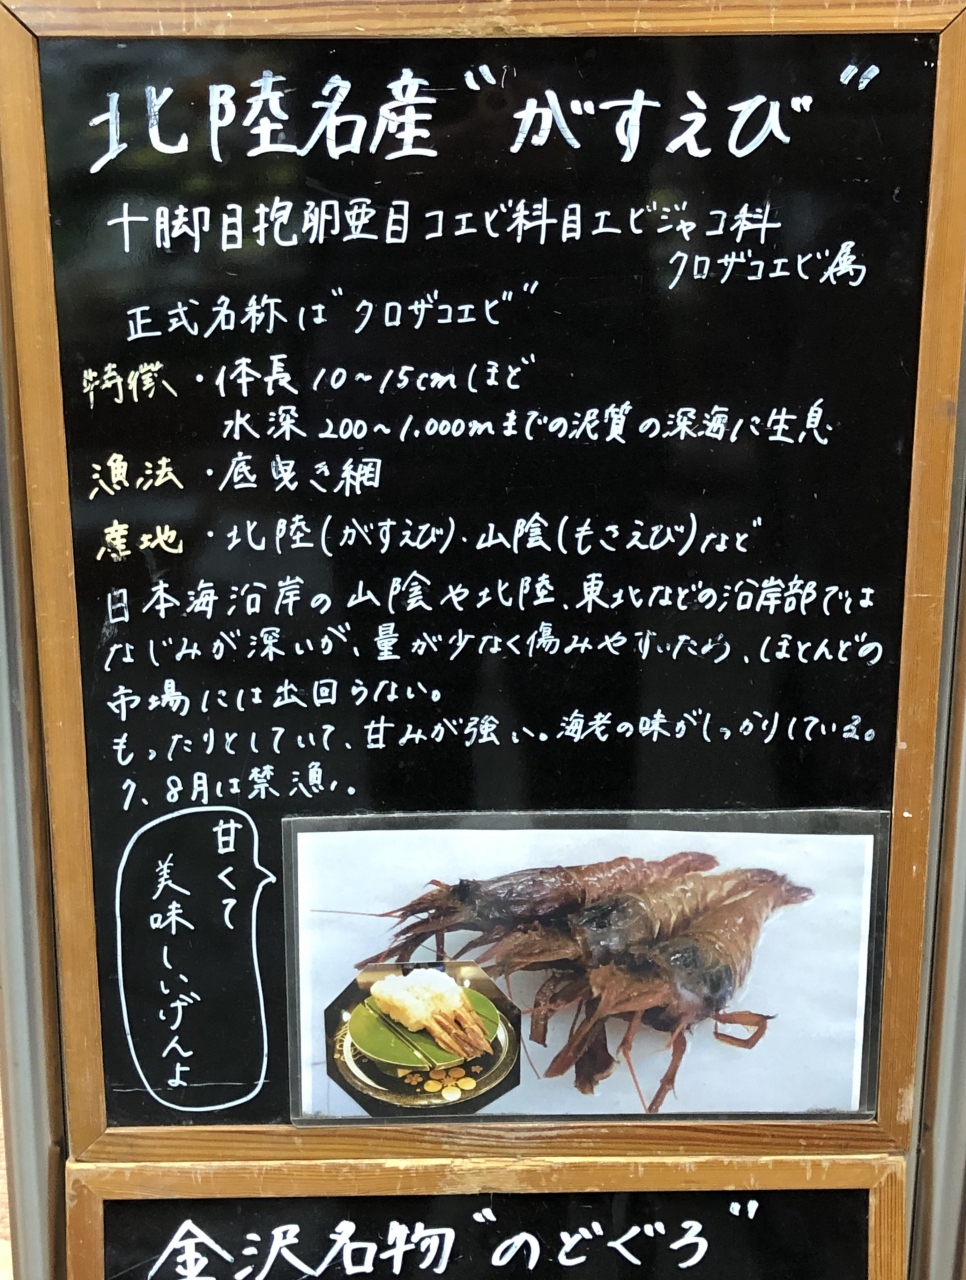 北陸名産"がすえび"
十脚目抱卵亜目コエビ科目エビジャコ科
クロザコエビ属
正式名称は"クロザコエビ"
特徴・体長10~15cmほど
水深200~1.000mまでの泥質の深海に生息
漁法・底曳き網
産地・北陸(がすえび)・山陰(もさえび)など
日本海沿岸の山陰や北陸、東北などの沿岸部では
なじみが深いが、量が少なく傷みやすいため、ほとんどの
市場には出回らない。
もったりとしていて、甘みが強い。海老の味がしっかりしている。
7、8月は禁漁。
甘くて
美味しいげんよ
金沢名物"のどぐろ"